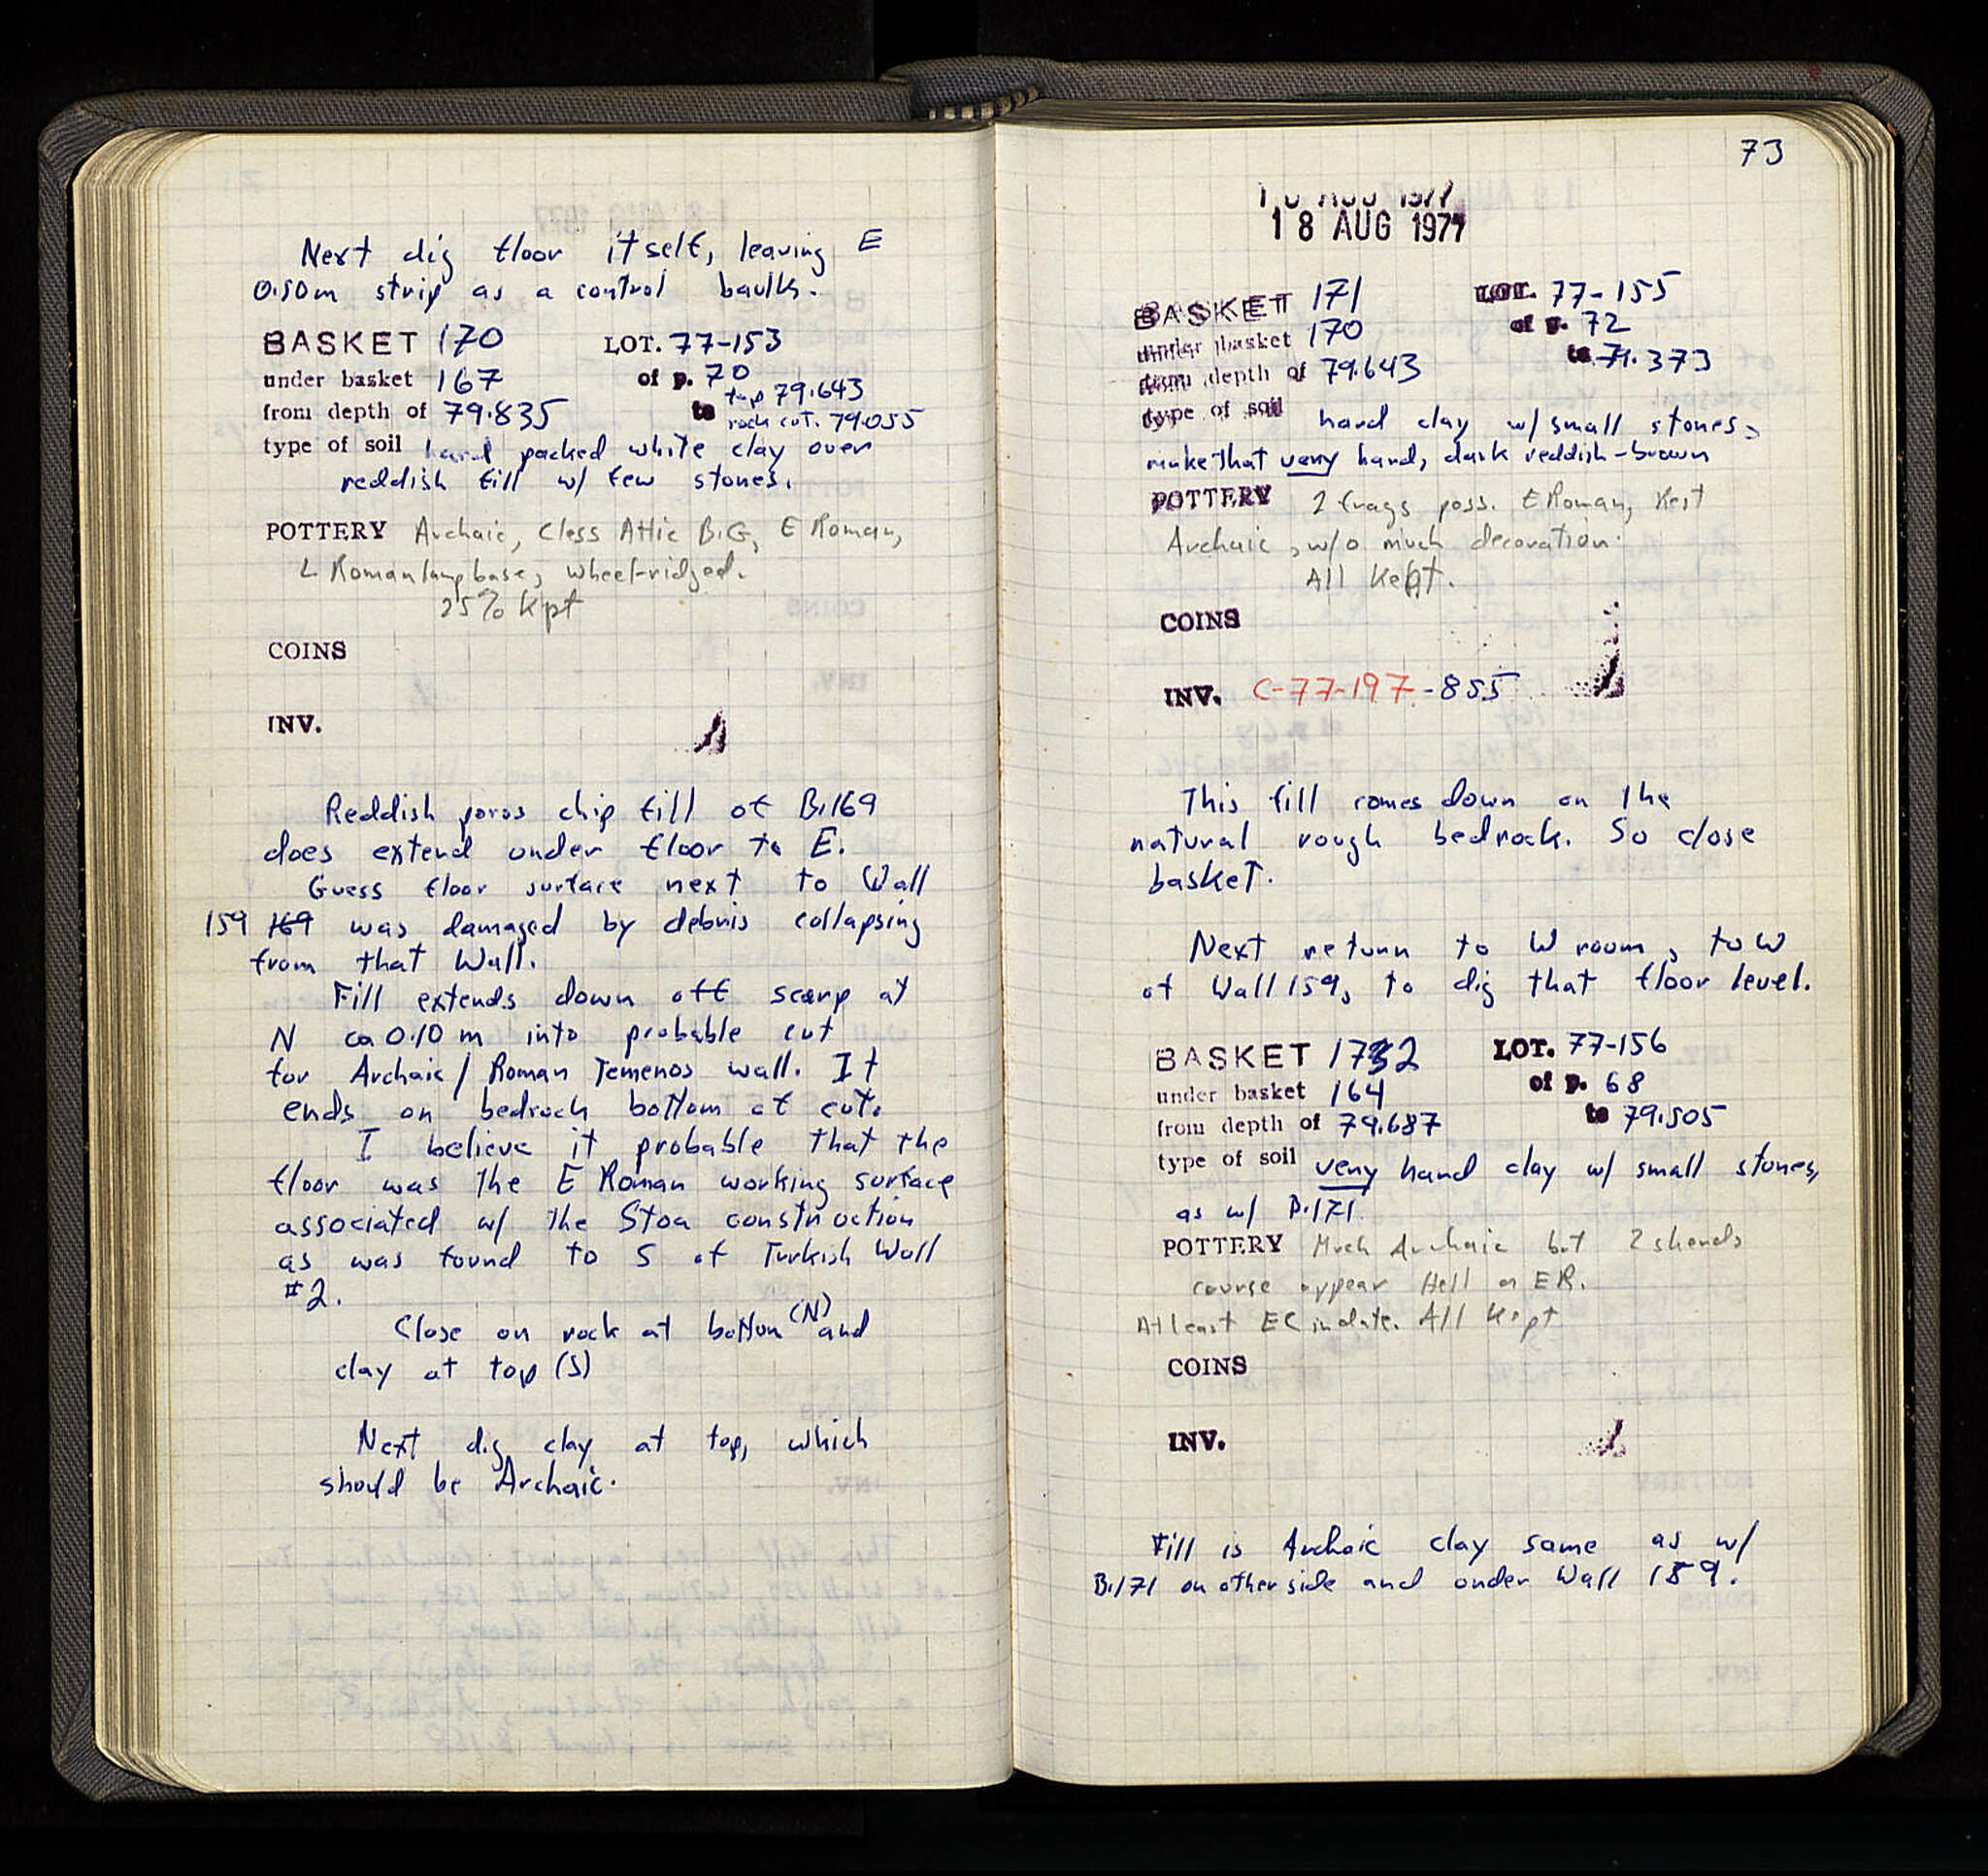 Next dig floor itself, leaving E
0.50m strip as a control baulk.
BASKET 170 LOT. 77-153
under basket 167 of p. 70
from depth of 79.835 to top 79.643
rock cut. 79.055
type of soil hard packed white clay over
reddish fill w/ few stones.
POTTERY Archaic, Class Attic B.G, E Roman,
L Roman lamp base, wheel-ridged.
25% kpt
COINS
INV.
Reddish poros chip fill of B.169
does extend under floor to E.
Guess floor surface next to Wall
159 169 was damaged by debris collapsing
from that Wall.
Fill extends down off scarp at
N ca 0.10 m into probable cut
for Archaic/Roman Temenos wall. It
ends on bedrock bottom of cut.
I believe it probable that the
floor was the E Roman working surface
associated w/ the Stoa construction
as was found to S of Turkish Wall
#2.
Close on rock at bottom (N) and
clay at top (S)
Next dig clay at top, which
should be Archaic.
73
18 AUG 1977
18 AUG 1977
BASKET 171 LOT. 77-155
under basket 170 of p. 72
from depth of 79.643 to 79.373
type of soil hard clay w/ small stones,
make that very hard, dark reddish-brown
POTTERY 2 frags poss. E Roman, Rest
Archaic, w/o much decoration.
All Kept.
COINS
INV. C-77-197 -855
This fill comes down on the
natural rough bedrock. So close
basket.
Next return to W room, to W
of Wall 159, to dig that floor level.
BASKET 172 LOT. 77-156
under basket 164 of p. 68
from depth of 79.687 to 79.505
type of soil very hard clay w/ small stones,
as w/ B.171
POTTERY Much Archaic but 2 sherds
course appear Hell or ER.
At least EC in date. All Kept
COINS
INV.
Fill is Archaic clay same as w/
B.171 on other side and under Wall 159.